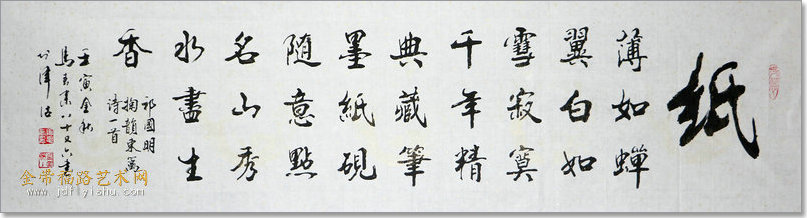 纸
薄如蝉
翼白如
雪寂寞
千年精
典藏筆
墨紙硯
隨意點
名山秀
水盡生
香
祁國明
詩一首
壬寅金秋
金带福路艺术网
www.jdflyishu.com